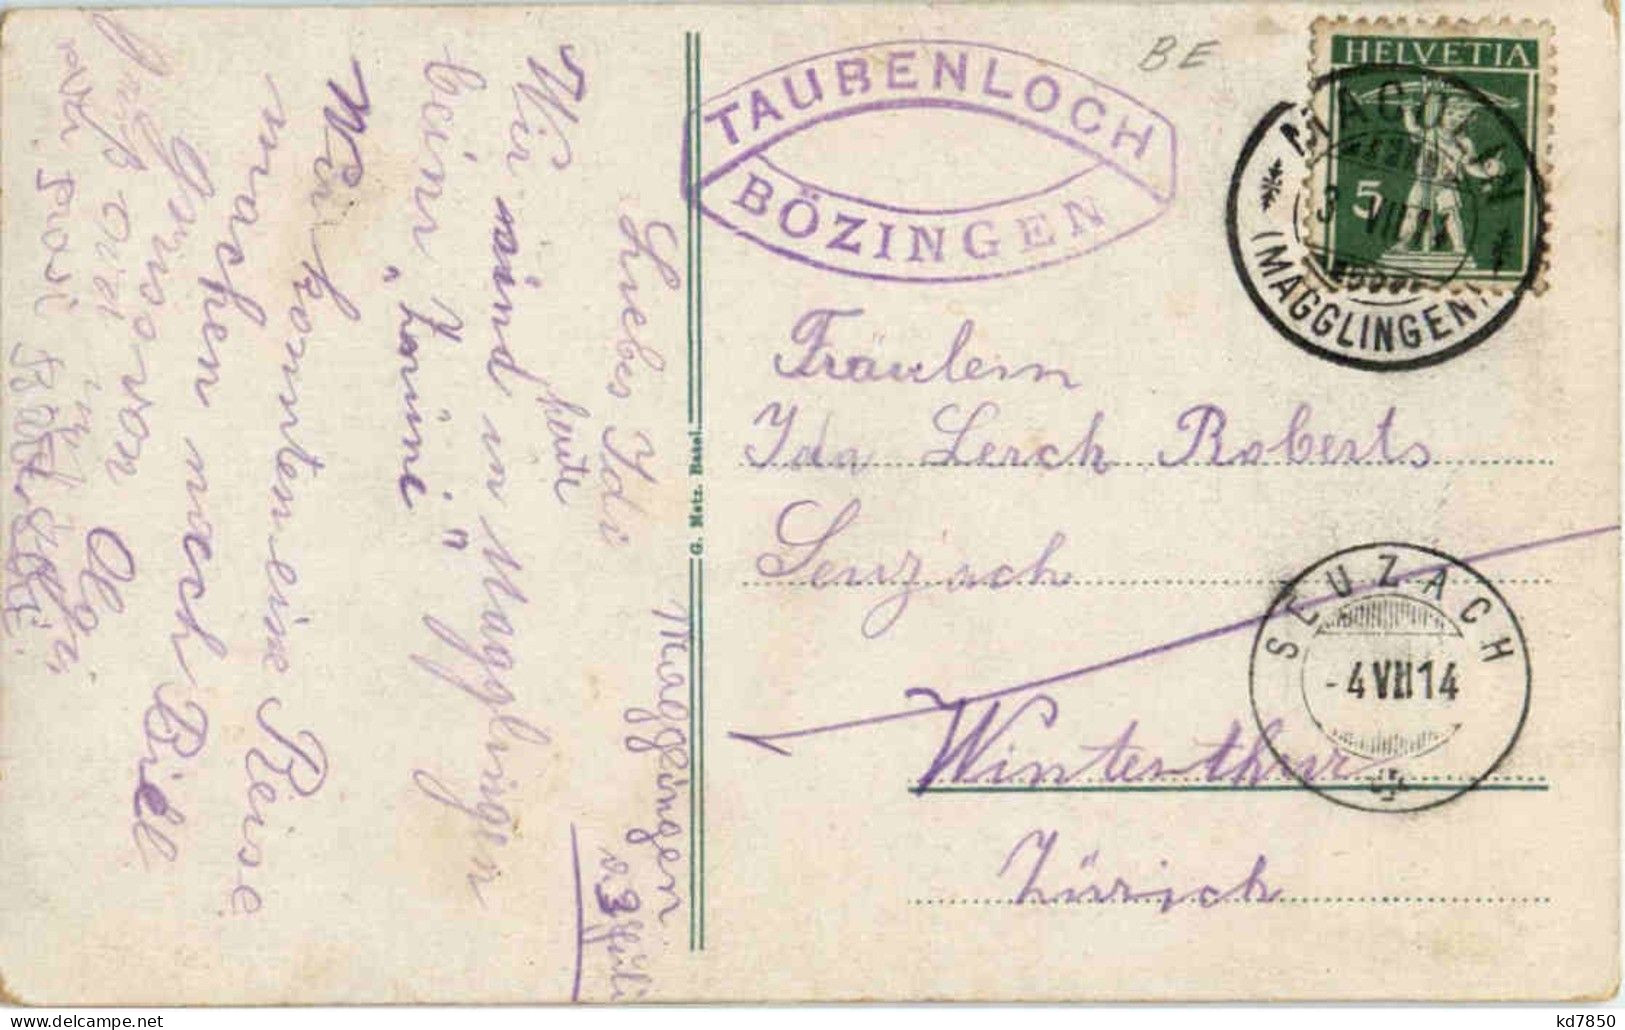 BE
HELVETIA
5
MACOLIN
3 VII 14
(MAGGLINGEN)
TAUBENLOCH
BÖZINGEN
Fräulein
Ida Lerch Roberts
Seuzach
Winterthur
Zürich
SEUZACH
-4 VII 14
G. Metz. Basel.
Magglingen
d 3 Juli
Liebes Idi
heute
Wir sind in Magglingen
beim
Wir konnten eine Reise
machen nach Biel
Gruss von Olga
delcampe.net
kd7850